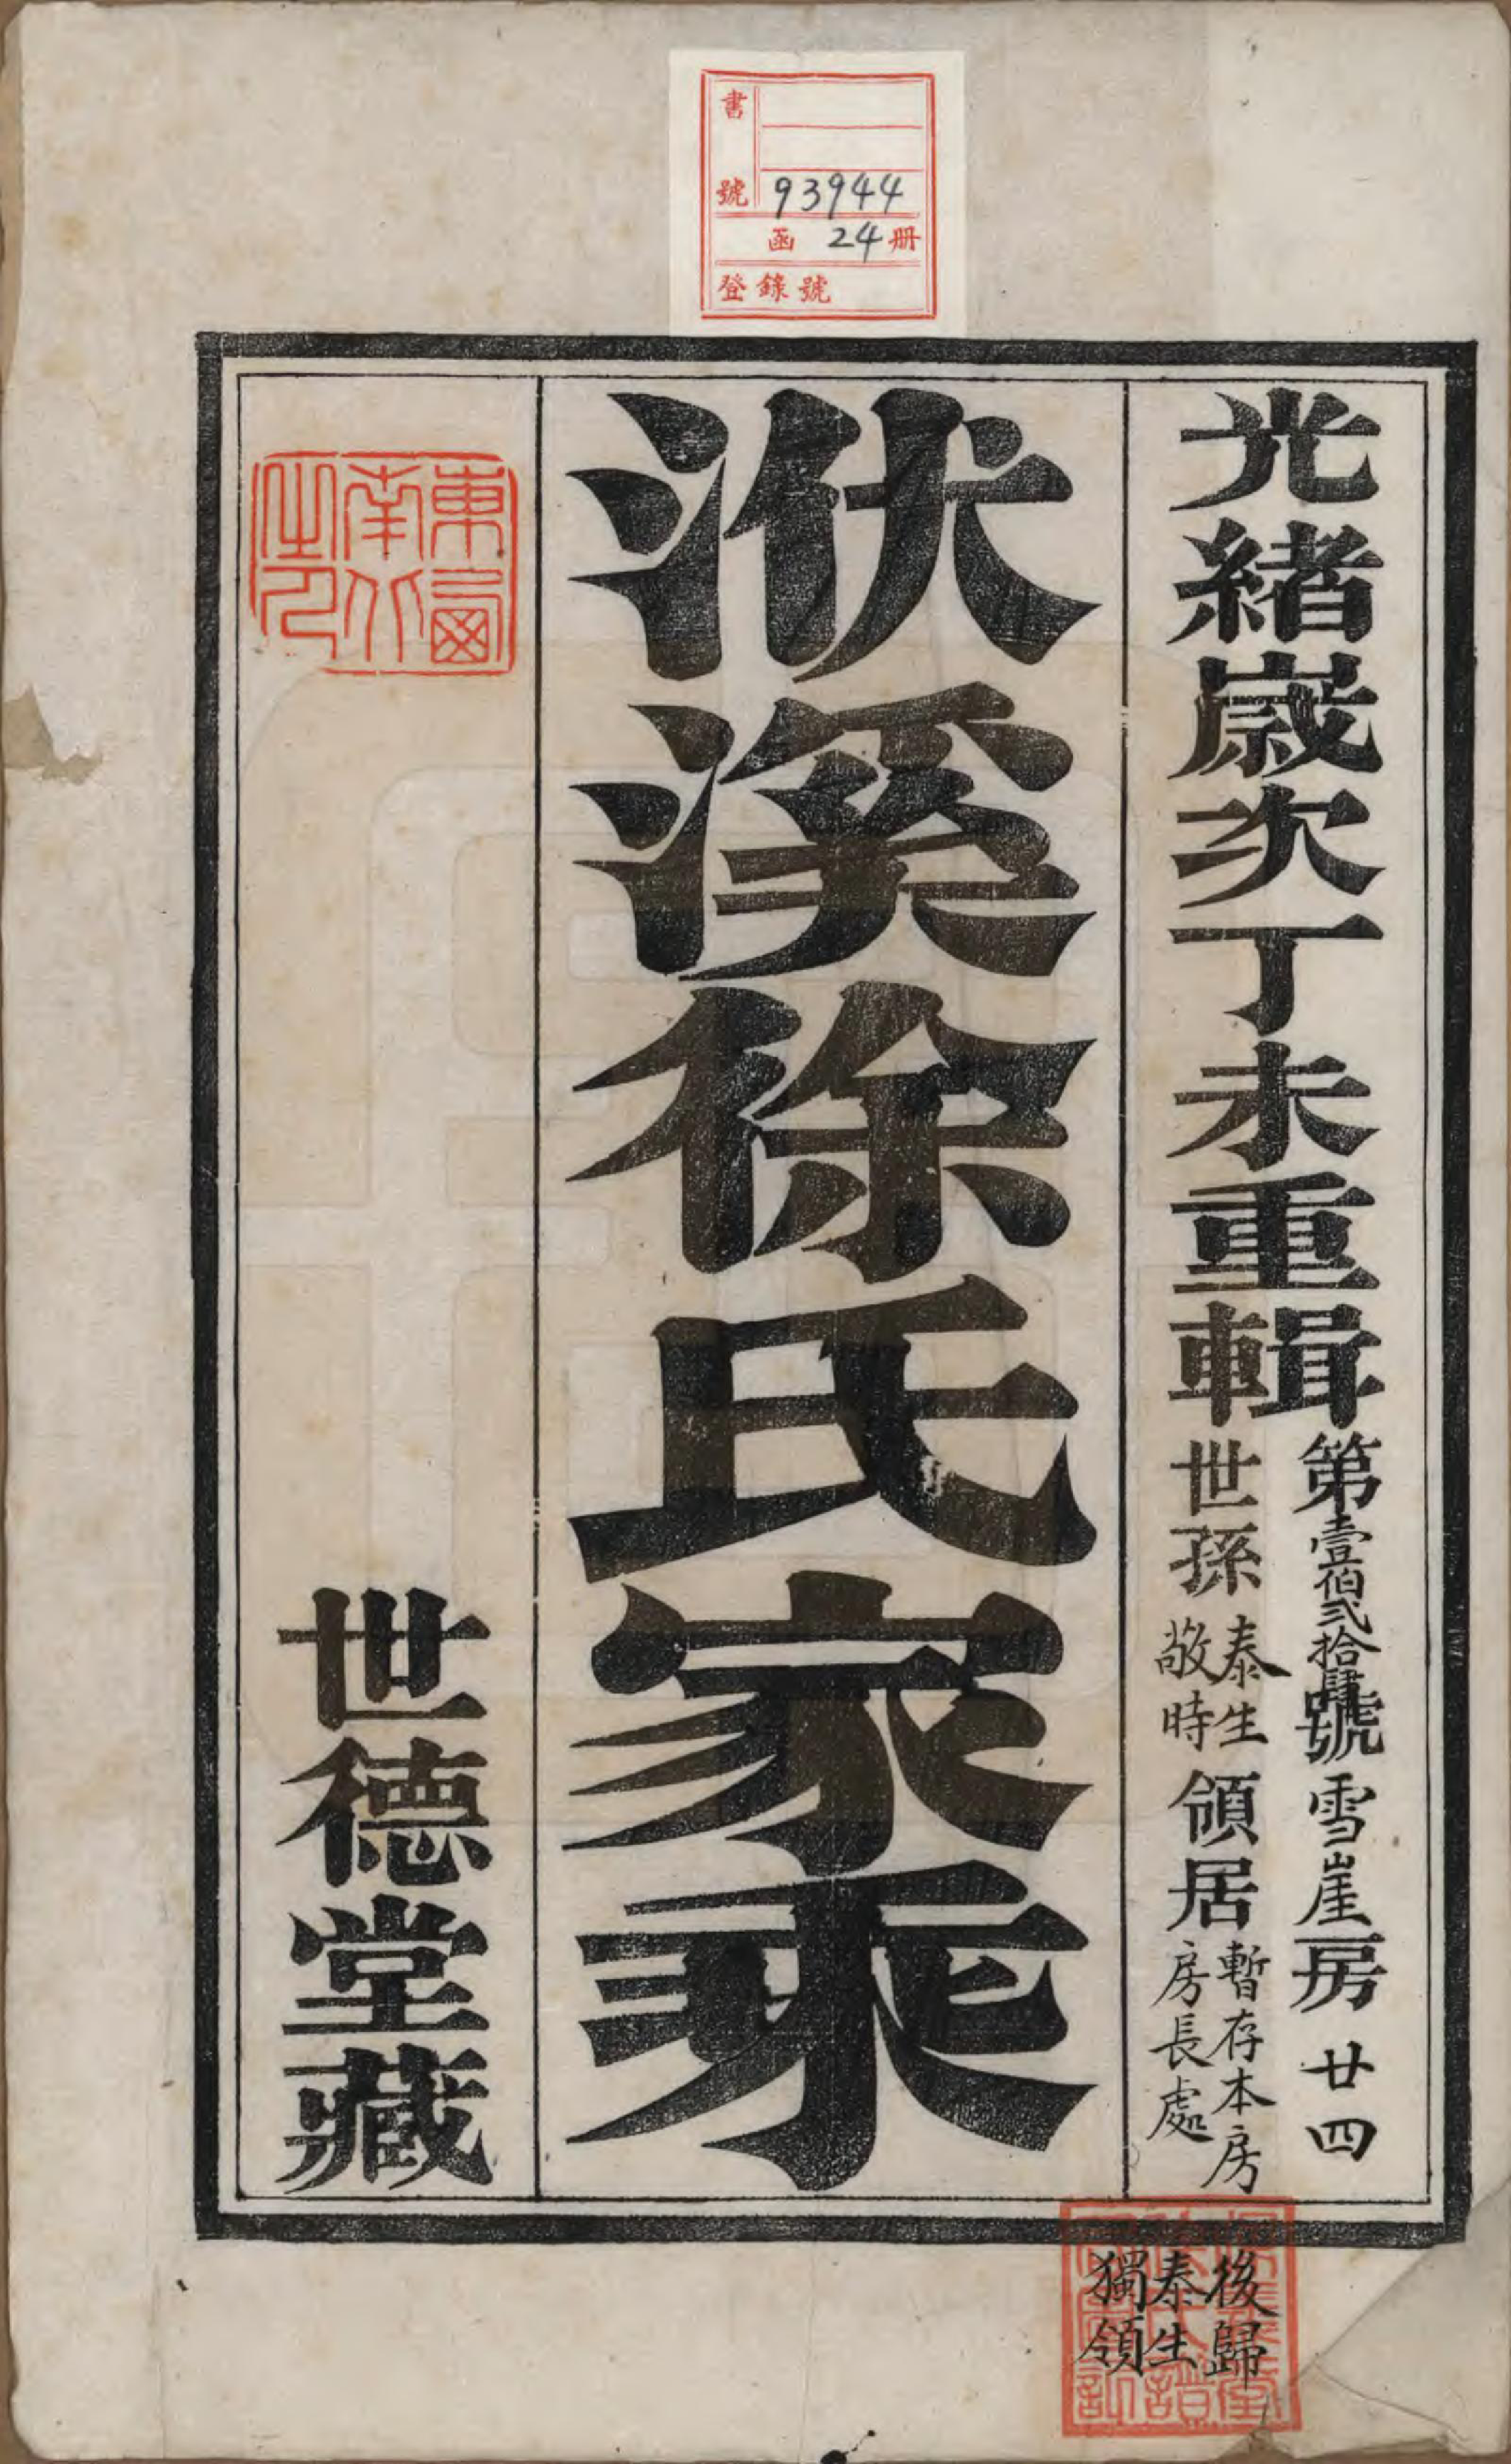 書號 93944
函 24 册
登錄號
光緒歲次丁未重輯
第壹伯貳拾肆號雪崖房廿四
世孫泰生敬時領居暫存本房房長處
洑溪徐氏家乘
世德堂藏
東西南北之人
後歸
泰生
獨領